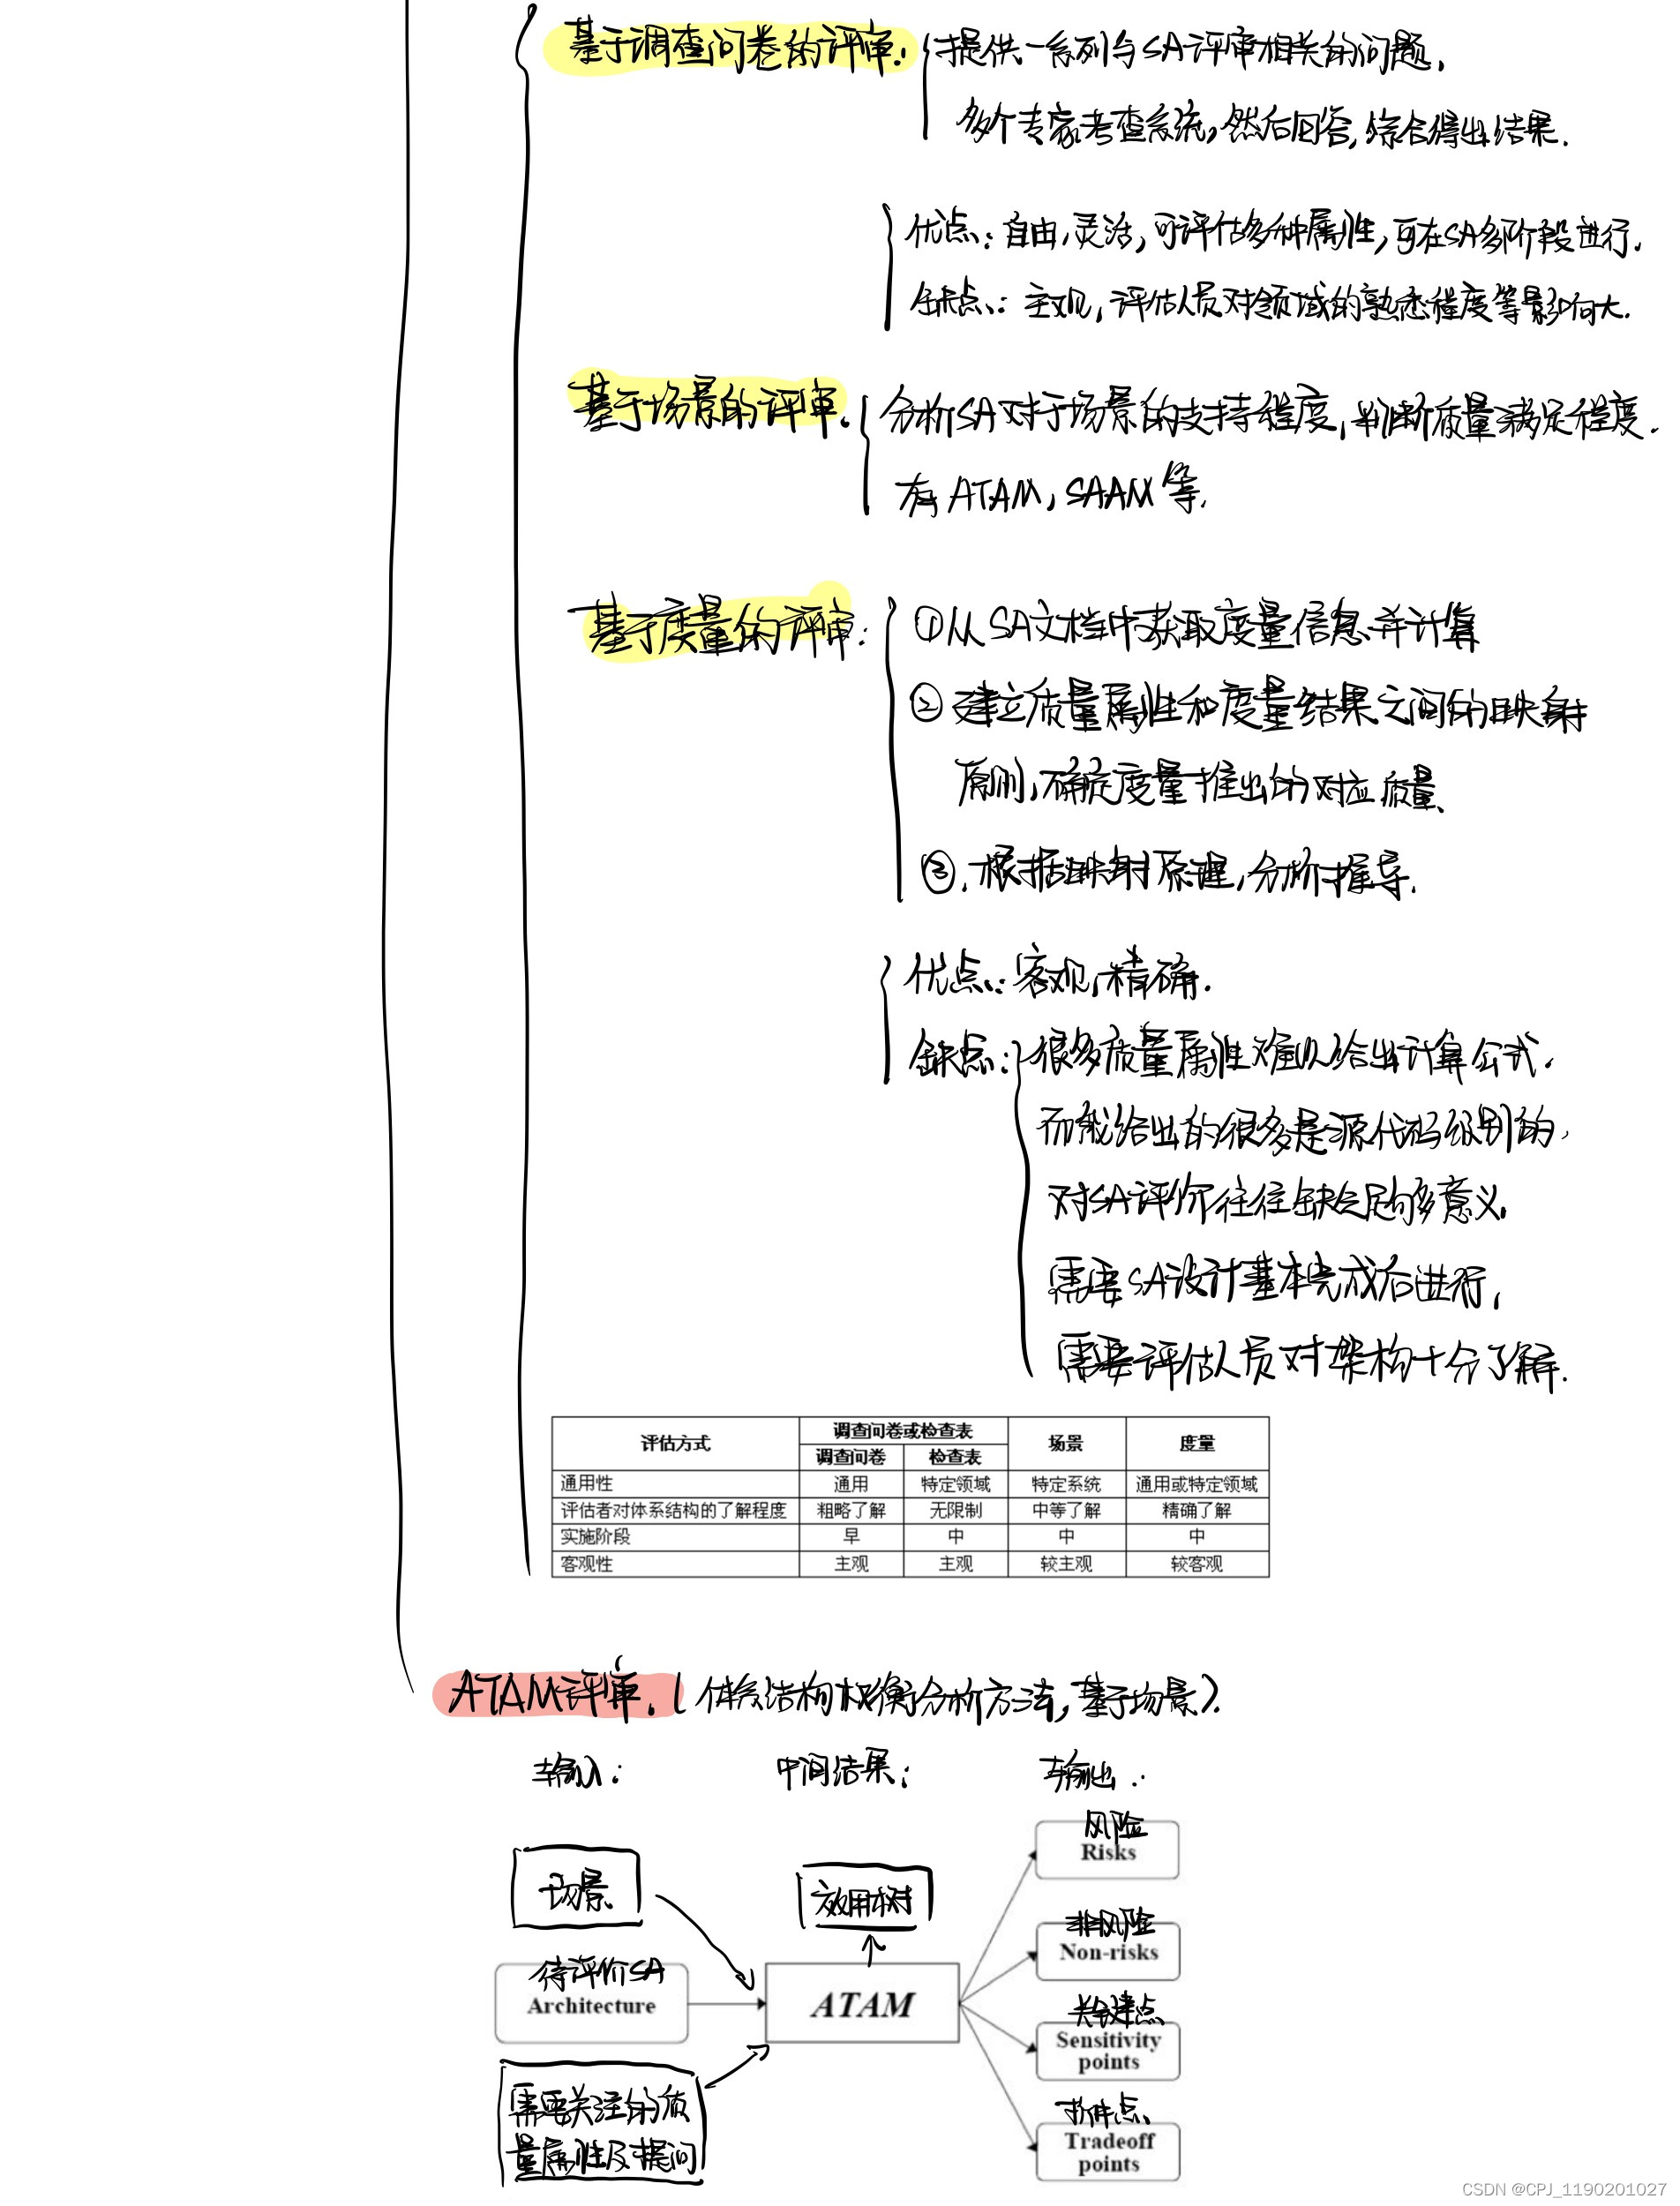 基于调查问卷的评审: 提供一系列与SA评审相关的问题,
多个专家考查系统,然后回答,综合得出结果.
优点: 自由,灵活,可评估多种属性,可在SA多阶段进行.
缺点: 主观,评估人员对领域的熟悉程度等影响大.
基于场景的评审. 分析SA对于场景的支持程度,判断质量满足程度.
有ATAM,SAAM等.
基于度量的评审: ①从SA文档中获取度量信息并计算
②建立质量属性和度量结果之间的映射
原则,确定度量推出的对应质量.
③.根据映射原理,分析推导.
优点: 客观,精确.
缺点: 很多质量属性难以给出计算公式.
而能给出的很多是源代码级别的,
对SA评价往往缺乏足够多意义.
需要SA设计基本完成后进行,
需要评估人员对架构十分了解.
评估方式 调查问卷或检查表 场景 度量
调查问卷 检查表
通用性 通用 特定领域 特定系统 通用或特定领域
评估者对体系结构的了解程度 粗略了解 无限制 中等了解 精确了解
实施阶段 早 中 中 中
客观性 主观 主观 较主观 较客观
ATAM评审.(体系结构权衡分析方法,基于场景).
输入: 中间结果: 输出:
场景
待评价SA
Architecture
需要关注的质
量属性及提问
效用树
ATAM
风险
Risks
非风险
Non-risks
关键点
Sensitivity
points
折中点
Tradeoff
points
CSDN @CPJ_1190201027